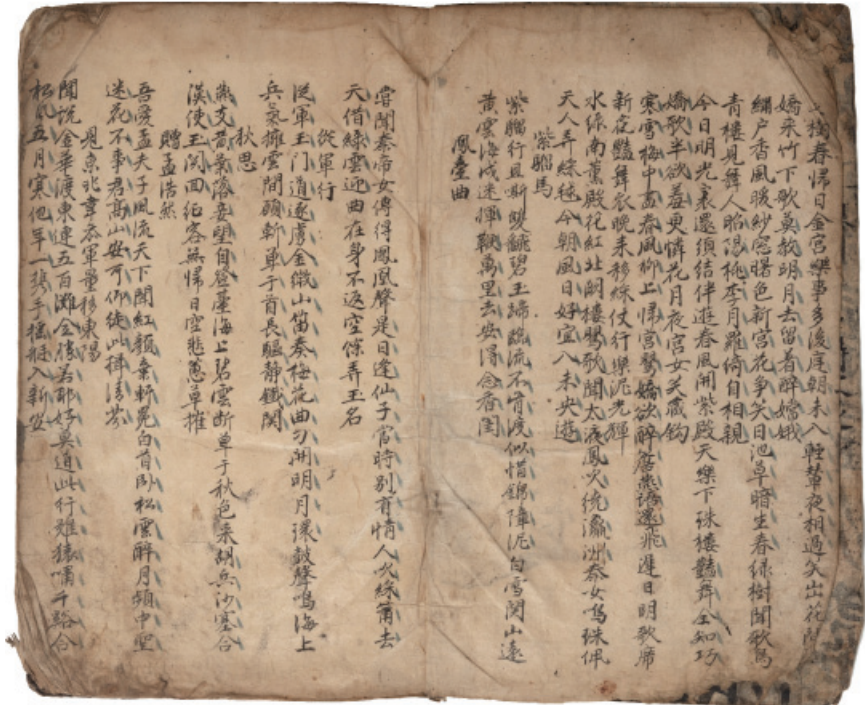 樹春帰日金宮樂事多後庭朝未入輕輦夜相過笑出花間
嬌來竹下歌莫教明月去留着醉嫦娥
繡户香風暖紗窓曙色新宮花爭笑日池草暗生春綠樹聞歌鳥
青樓見舞人昭陽桃李月羅綺自相親
今日明光裏還須結伴遊春風開紫殿天樂下珠樓豔舞全知巧
嬌歌半欲羞更憐花月夜宮女笑藏鈎
寒雪梅中盡春風柳上帰宮鶯嬌欲醉簷燕語還飛遲日明歌席
新花豔舞衣晚来移綵仗行樂泥光輝
水綠南薰殿花紅北闕樓鶯歌聞太液鳳吹繞瀛洲素女鳴珠佩
天人弄綵毬今朝風日好宜入未央遊
紫騮馬
紫騮行且嘶雙翻碧玉蹄臨流不肯渡似惜錦障泥白雪関山遠
黄雲海戍迷揮鞭萬里去安得念香閨
鳳臺曲
嘗聞秦帝女傳得鳳凰聲是日逢仙子當時別有情人吹綵簫去
天借綠雲迎曲在身不返空餘弄玉名
從軍行
從軍玉門道逐虜金微山笛奏梅花曲刀開明月環鼓聲鳴海上
兵氣擁雲間願斬單于首長驅靜鐵関
秋思
燕支黄葉落妾望自登臺海上碧雲斷單于秋色来胡兵沙塞合
漢使玉関回征客無帰日空悲蕙草摧
贈孟浩然
吾愛孟夫子風流天下聞紅顔棄軒冕白首卧松雲醉月頻中聖
迷花不事君高山安可仰徒此揖清芬
見京兆韋參軍量移東陽
聞説金華渡東連五百灘全勝若耶好莫道此行難猿嘯千谿合
松風五月寒他年一携手搖艇入新安